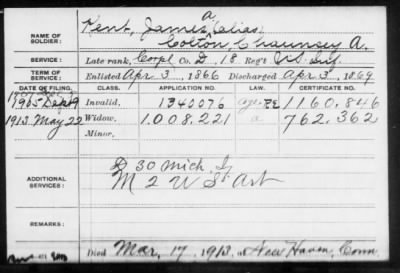 a
NAME OF SOLDIER: Kent, James, (alias)
Colton, Chauncey A.
SERVICE: Late rank, Corpl Co. D, 18 Reg't US Inf.
TERM OF SERVICE: Enlisted Apr 3, 1866 Discharged Apr 3, 1869
DATE OF FILING. CLASS. APPLICATION NO. LAW. CERTIFICATE NO.
1905 Sept 9 Invalid, 1340076 1160.846
1913 May 22 Widow, 1.008.221 a 762.362
Minor,
ADDITIONAL SERVICES: D 30 Mich. Inf
M 2 U S Art
REMARKS:
Died Mar. 17, 1913, at New Haven, Conn.